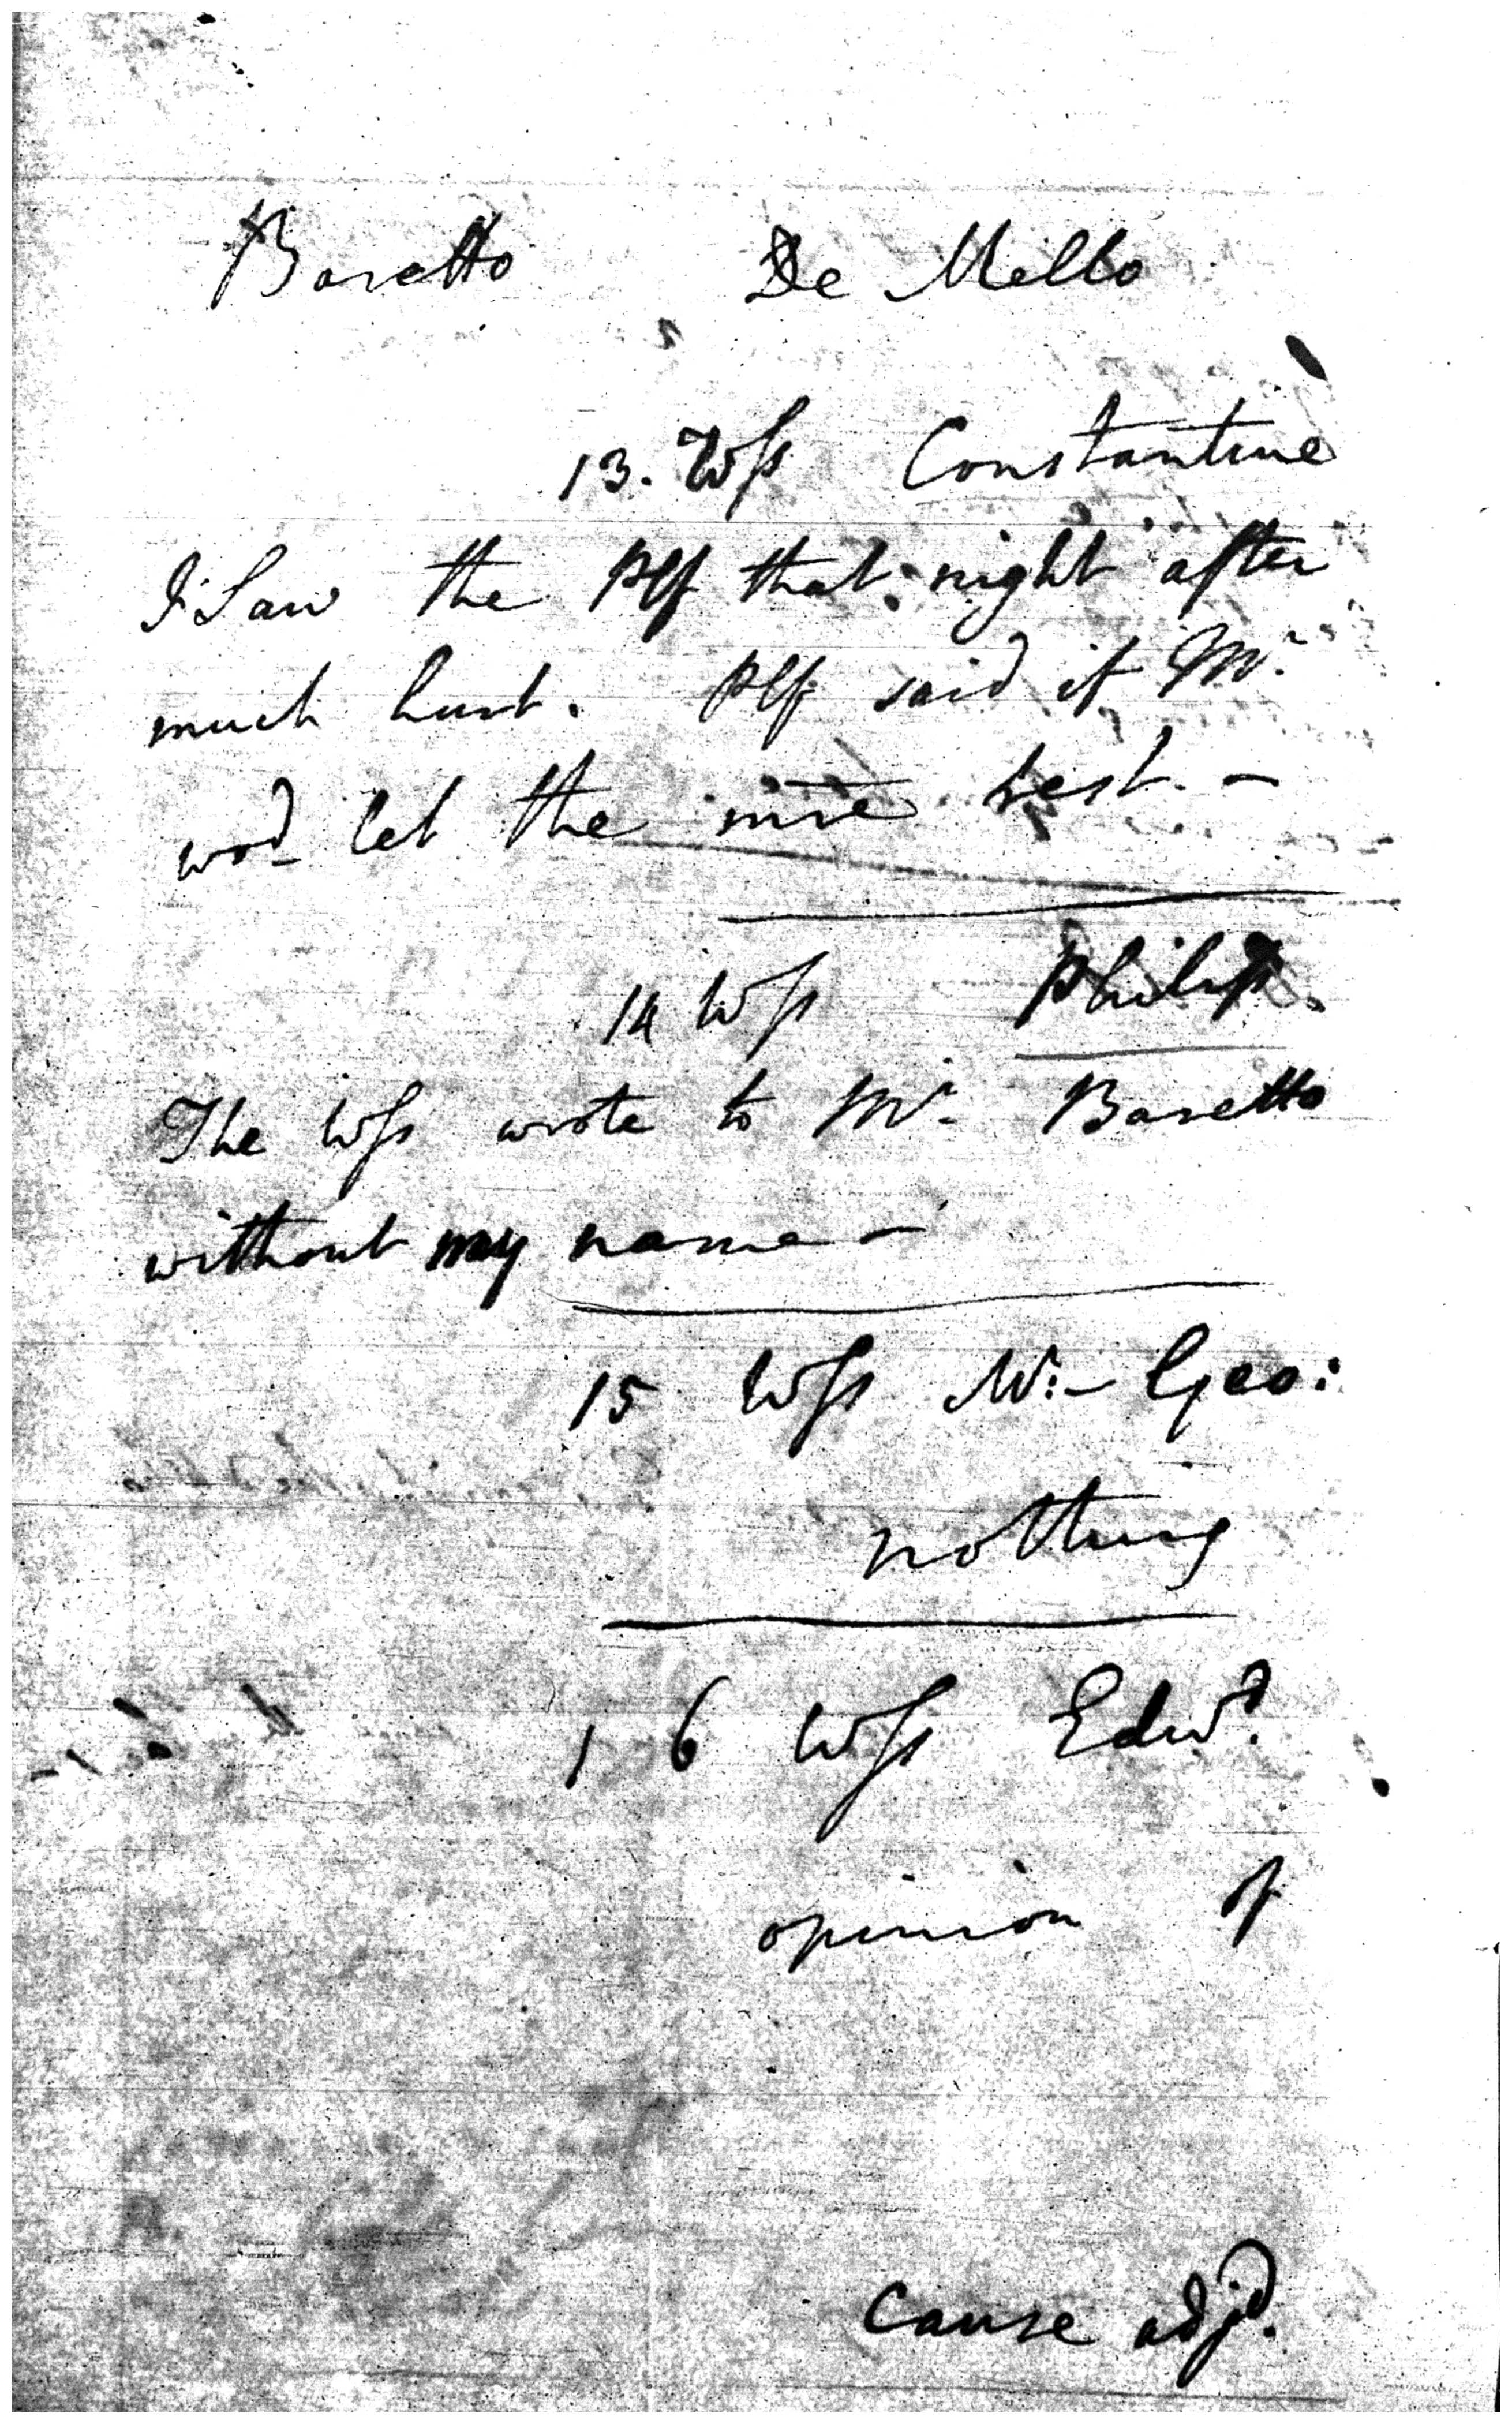 Baretto De Mello
13. Wss Constantine
I saw the Plf that night after
much hurt. Plf said if Mr.
wod let the rest. -
14 Wss Philip.
The Wss wrote to Mr. Baretto
without my name -
15 Wss Geo:
nothing
16 Wss Edwd.
opinion of
Cause adjd.